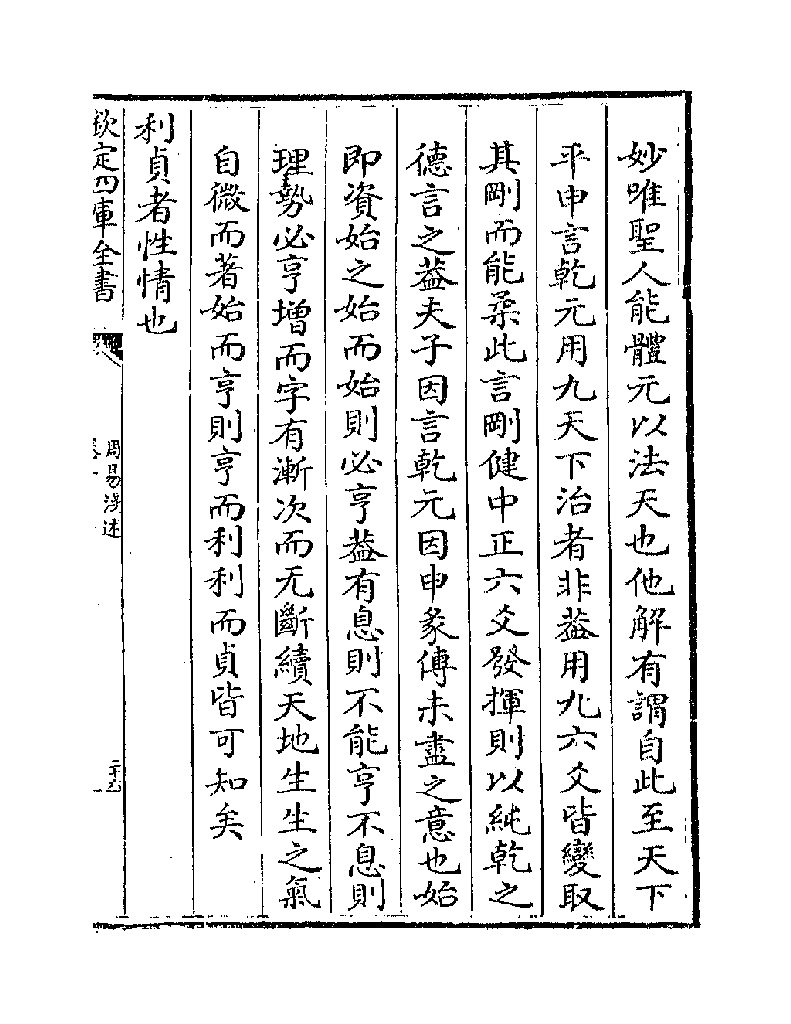 妙唯聖人能體元以法天也他解有謂自此至天下
平申言乾元用九天下治者非葢用九六爻皆變取
其剛而能柔此言剛健中正六爻發揮則以純乾之
德言之葢夫子因言乾元因申彖傳未盡之意也始
即資始之始而始則必亨葢有息則不能亨不息則
理勢必亨增而字有漸次而无斷續天地生生之氣
自微而著始而亨則亨而利利而貞皆可知矣
利貞者性情也
欽定四庫全書
周易淺述
卷一
二十五